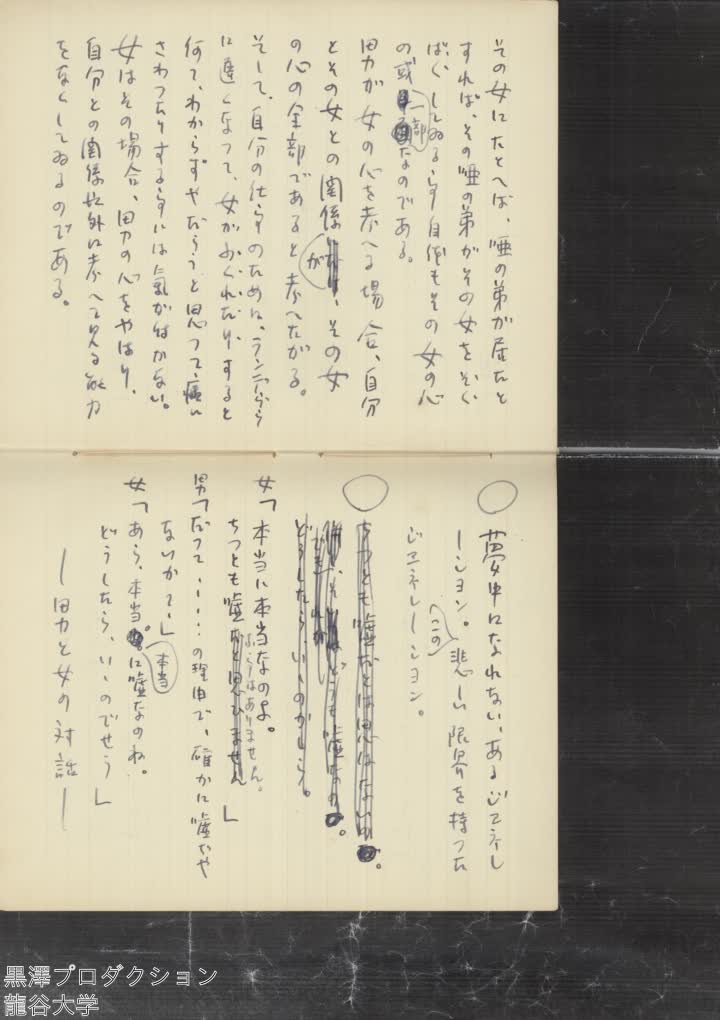 その女にたとへば、唖の弟が居たと
すれば、その唖の弟がその女をぞく
ばくしてゐるらす自体もその女の心
の或一部なのである。
男が女の心を考へる場合、自分
とその女との関係が、その女
の心の全部であると考へたがる。
そして、自分の仕うちのために、
に遠くなつて、女がふくれたり、すると
何て、わからずやだらうと思つて、痛い
さわつたりするらすには気が付かない。
女はその場合、男の心をやはり、
自分との関係以外に考へて見る能力
をなくしてゐるのである。
○ 夢中になれない、あるジエネレ
ーシヨン。悲しい限界を持つた
(この)
ジエネレーシヨン。
○ ちつとも嘘だとは思はないの。
どうしたら、いゝのかしら。
女「本当に本当なのよ。
ちつとも嘘だと思ひません」
ぢやありません。
男「だつて、……の理由で、確かに嘘ぢや
ないか?」
女「あら、本当。に嘘なのね。
本当
どうしたら、いゝのでせう」
―男と女の対話―
黒澤プロダクション
龍谷大学